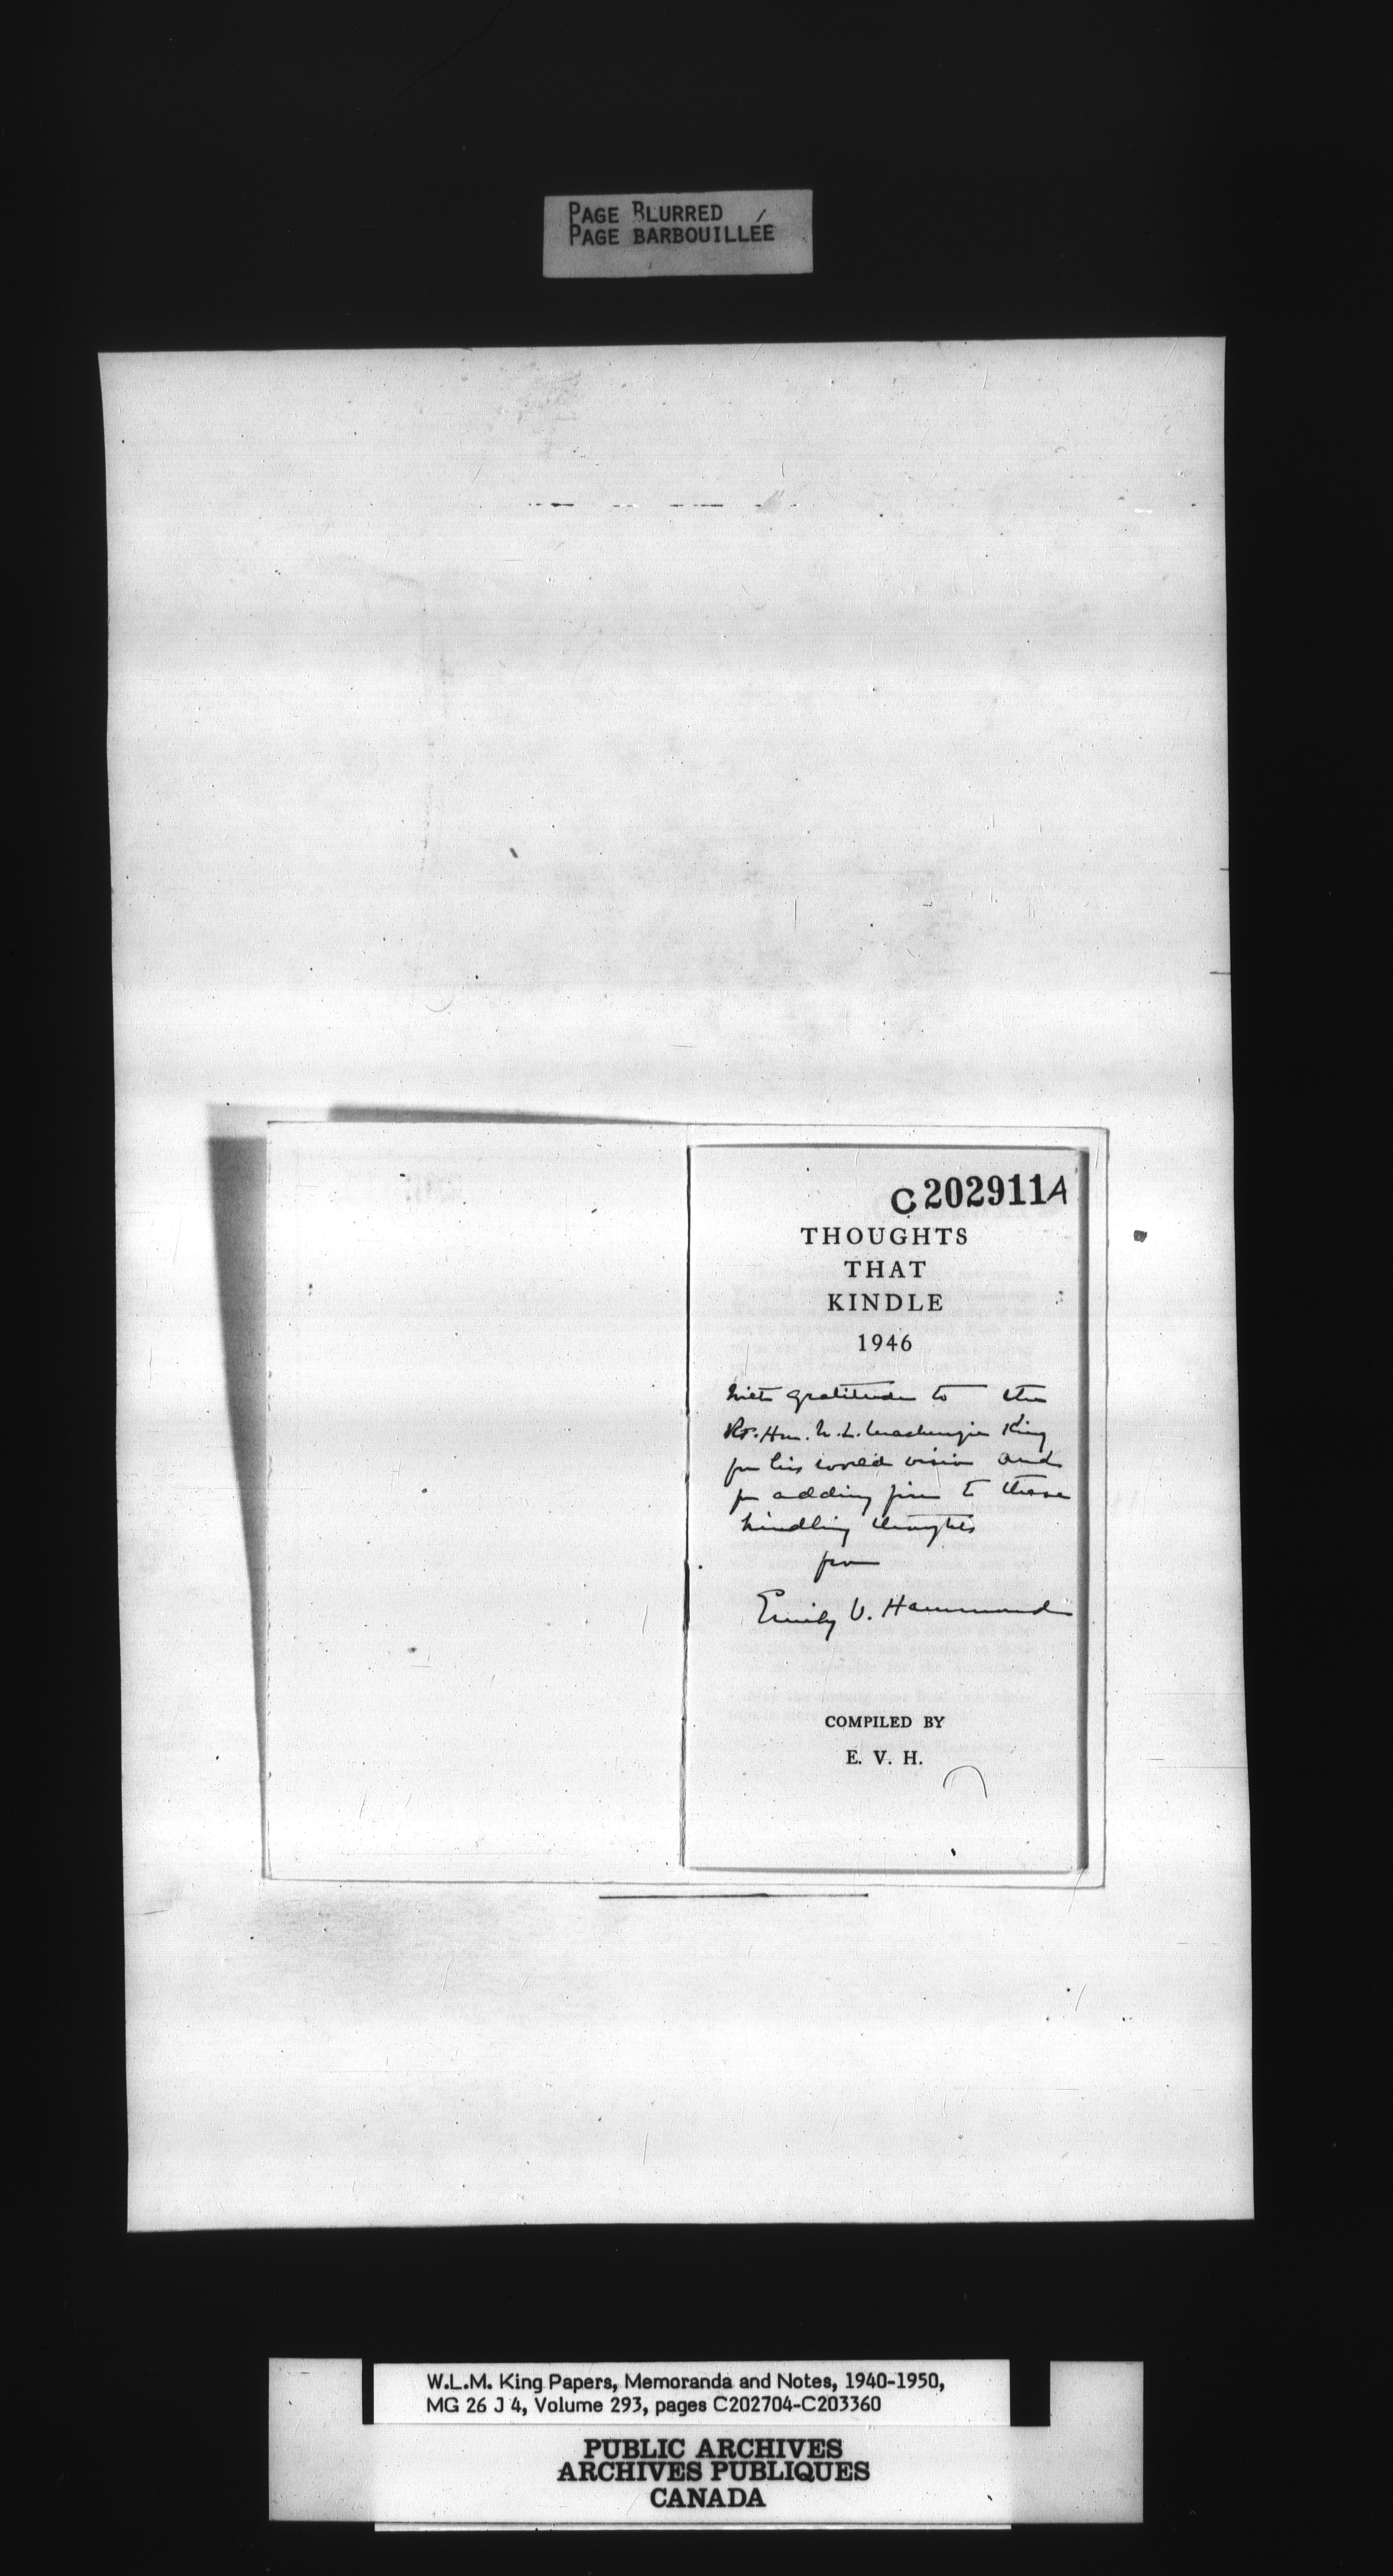 PAGE BLURRED
PAGE BARBOUILLÉE
C 202911A
THOUGHTS
THAT
KINDLE
1946
With gratitude to the
Rt. Hon. W. L. Mackenzie King
for his world vision and
for adding fire to these
kindling thoughts
from
Emily V. Hammond
COMPILED BY
E. V. H.
W.L.M. King Papers, Memoranda and Notes, 1940-1950,
MG 26 J 4, Volume 293, pages C202704-C203360
PUBLIC ARCHIVES
ARCHIVES PUBLIQUES
CANADA